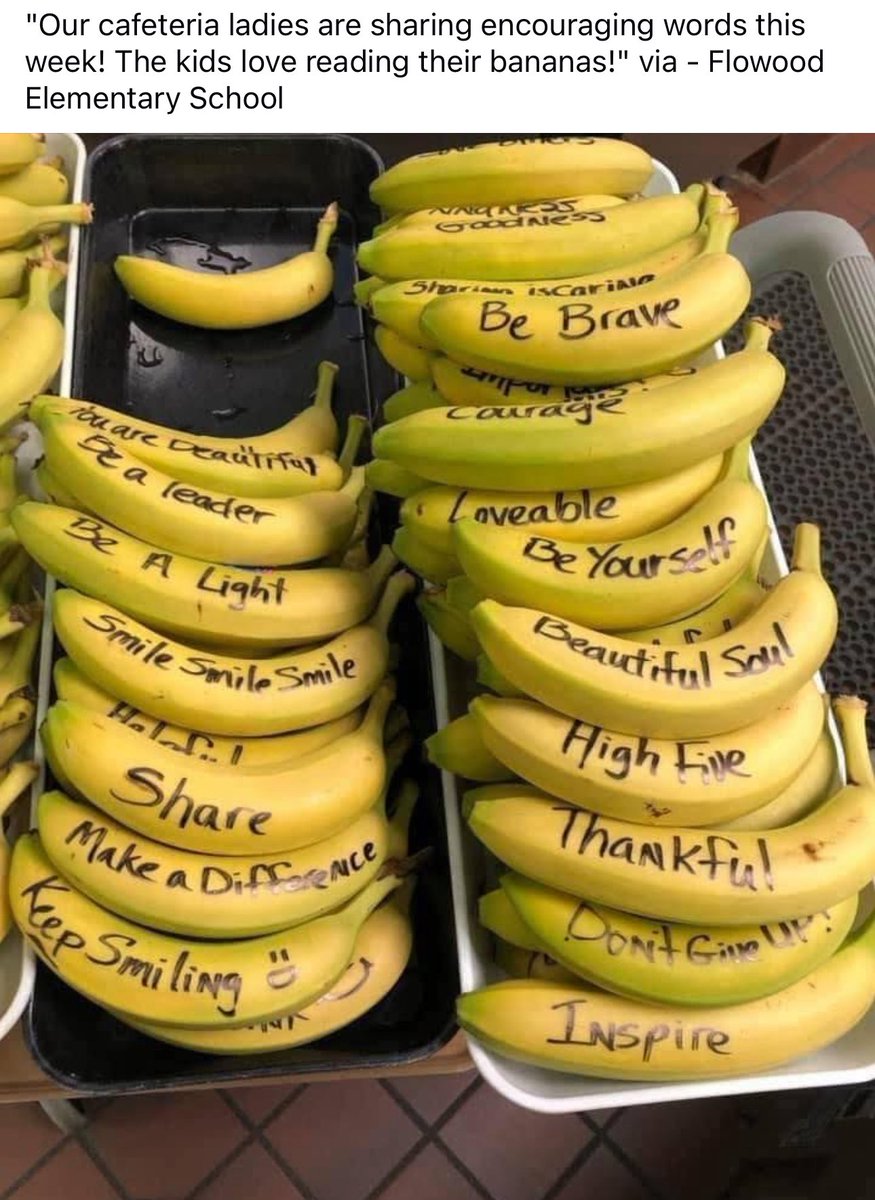 "Our cafeteria ladies are sharing encouraging words this
week! The kids love reading their bananas!" via - Flowood
Elementary School
You are Beautiful
Be a leader
Be A Light
Smile Smile Smile
Share
Make a Difference
Keep Smiling
Goodness
Sharing is Caring
Be Brave
Courage
Loveable
Be Yourself
Beautiful Soul
High Five
Thankful
Don't Give Up!
Inspire